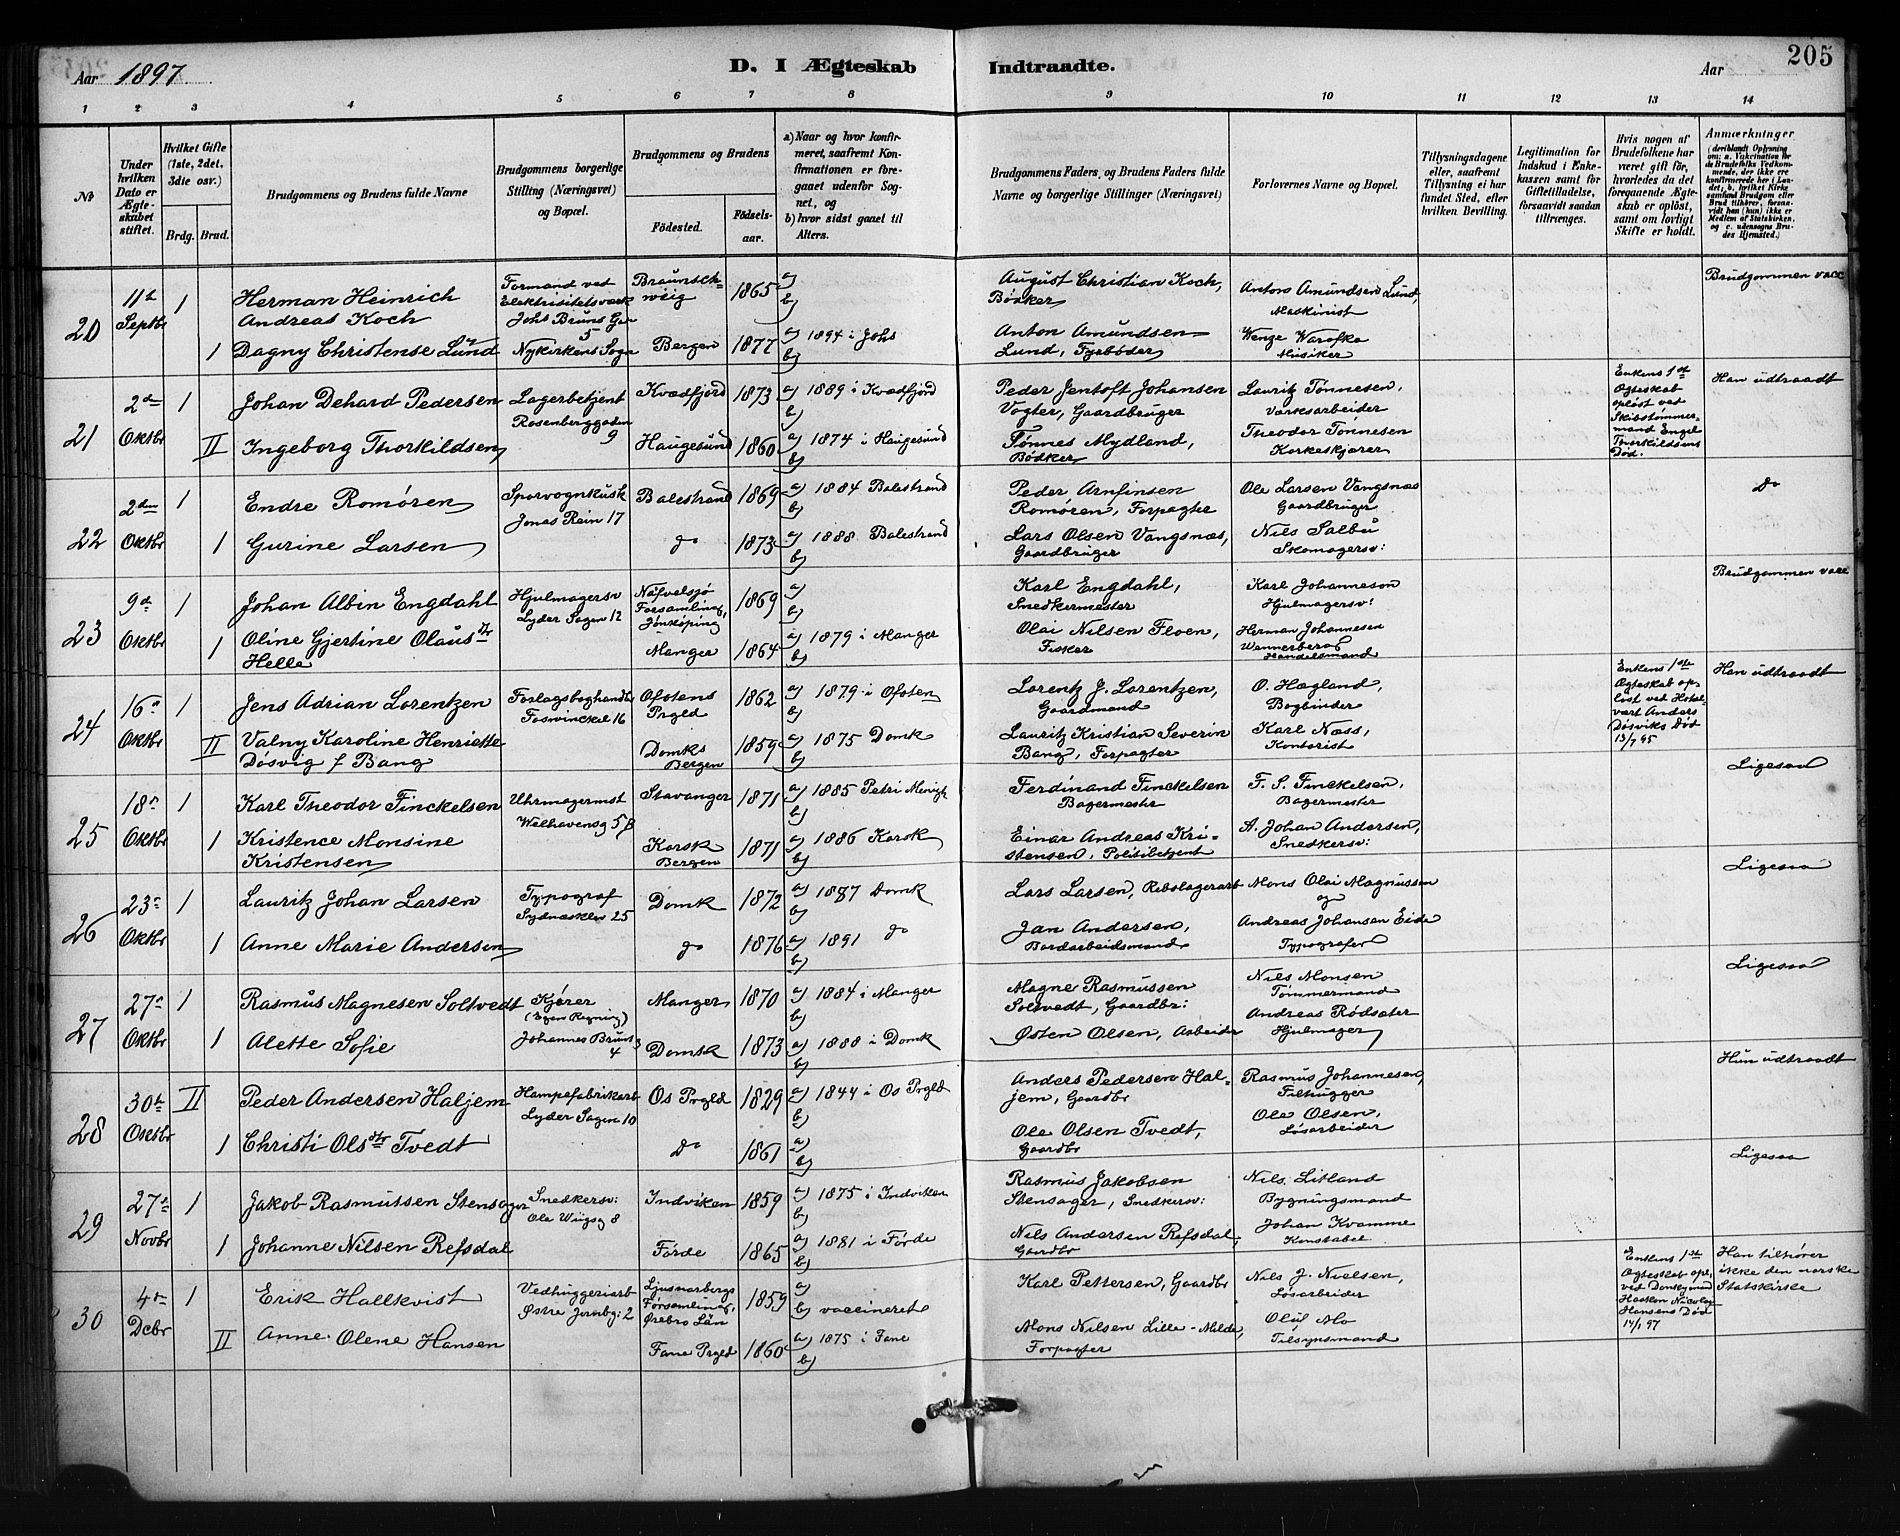 Aar 1897
D. I Ægteskab
Indtraadte.
Aar
205
1 2 3 4 5 6 7 8 9 10 11 12 13 14
№
Under hvilken Dato er Ægteskabet stiftet.
Hvilket Gifte (1ste, 2det, 3die osv.)
Brdg. Brud.
Brudgommens og Brudens fulde Navne
Brudgommens borgerlige Stilling (Næringsvei) og Bopæl.
Brudgommens og Brudens
Fødested.
Fødselsaar.
a) Naar og hvor konfirmeret, saafremt Konfirmationen er foregaaet udenfor Sognet, og
b) hvor sidst gaaet til Alters.
Brudgommens Faders, og Brudens Faders fulde Navne og borgerlige Stillinger (Næringsvei)
Forlovernes Navne og Bopæl.
Tillysningsdagene eller, saafremt Tillysning ei har fundet Sted, efter hvilken Bevilling.
Legitimation for Indskud i Enkekassen samt for Giftetilladelse, forsaavidt saadan tiltrænges.
Hvis nogen af Brudefolkene har været gift før, hvorledes da det foregaaende Ægteskab er opløst, samt om lovligt Skifte er holdt.
Anmærkninger (deriblandt Oplysning om: a. Vakcination for de Brudefolks Vedkommende, der ikke ere konfirmerede her i Landet; b. hvilket Kirkesamfund Brudgom eller Brud tilhører, forsaavidt han (hun) ikke er Medlem af Statskirken, og c. udensogns Brudes Hjemsted.)
20
11te Septbr
1
Herman Heinrich
Andreas Koch
Formand ved
Elektrisitetsverk
Johs Bruns Ga
5
Nykirkens Sogn
Braunschweig
1865
a)
b)
August Christian Koch,
Bødker
Antons Amundsen Lund
Maskinist
Brudgommen vacc
1
Dagny Christense Lund
Bergen
1877
a) 1894 i Johs
b)
Anton Amundsen
Lund, Fyrbøder
Wenze Warofka
Musiker
21
2den Oktbr
1
Johan Dehard Pedersen
Lagerbetjent
Rosenberggaden
9
Kvædfjord
1873
a) 1889 i Kvædfjord
b)
Peder Jentoft Johansen
Vogter, Gaardbruger
Lauritz Tønnesen,
Værksarbeider
Enkens 1ste
Ægteskab
opløst ved
Skibstømmermand Engel
Thorkildsens
Død.
Han udtraadt
II
Ingeborg Thorkildsen
Haugesund
1860
a) 1874 i Haugesund
b)
Tønnes Mydland,
Bødker
Theodor Tønnesen
Korkeskjærer
22
2den Oktbr
1
Endre Romøren
Sporvognkusk
Jonas Rein 17
Balestrand
1869
a) 1884 Balestrand
b)
Peder Arnfinsen
Romøren, Forpagter
Ole Larsen Vangsnæs
Gaardbruger
do
1
Gurine Larsen
do
1873
a) 1888 Balestrand
b)
Lars Olsen Vangsnæs,
Gaardbruger
Nils Salbu
Skomagersv:
23
9de Oktbr
1
Johan Albin Engdahl
Hjulmagersv
Lyder Sagen 12
Näfvelsjö
Forsamling,
Jönköping
1869
a)
b)
Karl Engdahl,
Snedkermester
Karl Johanneson
Hjulmagersv:
Brudgommen vacc
1
Oline Gjertine Olausdtr
Helle
Manger
1864
a) 1879 i Manger
b)
Olai Nilsen Floen,
Fisker
Herman Johannesen
Wennerberg
Handelsmand
24
16de Oktbr
1
Jens Adrian Lorentzen
Forlagsboghandler
Fosvinckel 16
Ofotens
Prgld
1862
a) 1879 i Ofoten
b)
Lorentz J. Lorentzen,
Gaardmand
O. Hægland,
Bogbinder
Enkens 1ste
Ægteskab opløst ved Hotelvært Anders
Døsviks Død
13/7 95
Han udtraadt
II
Valny Karoline Henriette
Døsvig f Bang
Domks
Bergen
1859
a) 1875 Domk
b)
Lauritz Kristian Severin
Bang, Forpagter
Karl Næss,
Kontorist
25
18de Oktbr
1
Karl Theodor Finckelsen
Uhrmagermst
Welhavensg 58
Stavanger
1871
a) 1885 Petri Menigh
b)
Ferdinand Finckelsen
Bagermester
F. S. Finckelsen,
Bagermester
Ligesaa
1
Kristence Monsine
Kristensen
Korsk
Bergen
1871
a) 1886 Korsk
b)
Einar Andreas Kristensen, Politibetjent
A. Johan Andersen,
Snedkersv:
26
23de Oktbr
1
Lauritz Johan Larsen
Typograf
Sydnæsklev 25
Domk
1872
a) 1887 Domk
b)
Lars Larsen, Rebslagerarb
Mons Olai Magnussen
og
Ligesaa
1
Anne Marie Andersen
do
1876
a) 1891 do
b)
Jan Andersen,
Bordarbeidsmand
Andreas Johansen Eide
Typografer
27
27de Oktbr
1
Rasmus Magnesen Soltvedt
Kjører
(Egen Regning)
Johannes Bruns
4
Manger
1870
a) 1884 i Manger
b)
Magne Rasmussen
Soltvedt, Gaardbr:
Nils Monsen
Tømmermand
Ligesaa
1
Alette Sofie
Domsk
1873
a) 1888 i Domk
b)
Østen Olsen, Arbeider
Andreas Rødsæter
Hjulmager
28
30te Osktbr
II
Peder Andersen Haljem
Hampefabrikarb
Lyder Sagen 10
Os Prgld
1829
a) 1844 i Os Prgld
b)
Anders Pedersen Haljem, Gaardbr
Rasmus Johannesen,
Filhugger
Hun udtraadt
1
Christi Olsdtr Tvedt
do
1861
a)
b)
Ole Olsen Tvedt,
Gaardbr
Ole Olsen,
Løsarbeider
29
27de Novbr
1
Jakob Rasmutsen Stensager
Snedkersv:
Ole Wiigsg 8
Indviken
1859
a) 1875 i Indviken
b)
Rasmus Jakobsen
Stensager, Snedkersv:
Nils Litland
Bygningsmand
Ligesaa
1
Johanne Nilsen Refsdal
Førde
1865
a) 1881 i Førde
b)
Nils Andersen Refsdal,
Gaardbr
Johan Kvamme
Konstabel
30
4de Dcbr
1
Erik Hallkvist
Vedhuggeriarb
Østre Jernbg: 2
Ljusnarbergs
Församling,
Örebro Län
1859
a)
b) vaccineret
Karl Pettersen, Gaardbr
Nils J. Nielsen,
Løsarbeider
Enkens 1ste
Ægteskab opl,
ved
Haakon Nicolay
Hansens Død
14/1 97
Han tilhører
ikke den norske
Statskirke
II
Anne Olene Hansen
Fane Prgld
1860
a) 1875 i Fane
b)
Mons Nilsen Lille-Milde,
Forpagter
Oluf Mo
Tilsynsmand